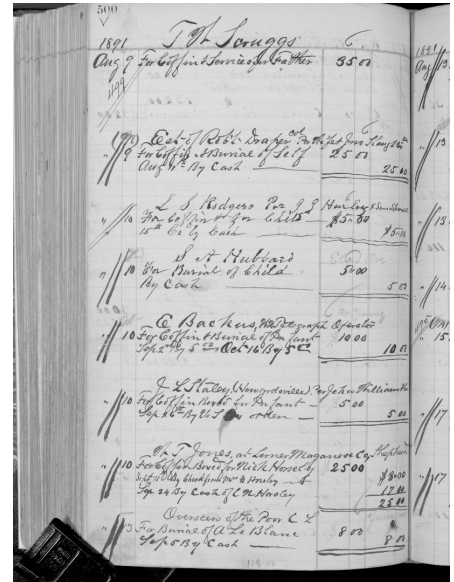 500
1891 T W Scruggs
Aug 9 For Coffin & Services for Father 35 00
499
Est of Robt Draper col Per
" 9 For Coffin & Burial of Self 25 00
Aug By Cash 25 00
L S Rodgers Per J J
" 10 For Coffin for Child $5.00
15th By Cash $5.00
S A Hubbard
" 10 For Burial of Child 5.00
By Cash 5 00
C Backus, Telegraph Operator
" 10 For Coffin & Burial of Infant 10 00
Sept 2 By 5 00 Oct 16 By 5 00 10 00
J L Staley (Howardsville) Per John Williams
" 10 For Coffin Boxed for Infant 5 00
Sep 26th By order 5 00
W T Jones, at Manganese Co
" 10 For Coffin Boxed for Nick Horsley 25 00
By check from Horsley $8.00
Sep 24 By Cash of C N Horsley 17 00
25 00
Overseer of the Poor
" 13 For Burial of A Le Blanc 8 00
Sep 5 By Cash 8 00
1891
Aug 13
" 13
" 13
" 14
" 15
" 17
" 17